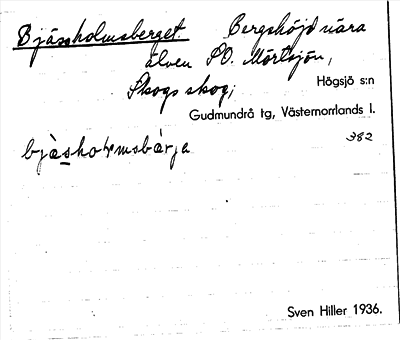 Bjässholmsberget Bergshöjd nära
älven SO. Mörtsjön,
Skogs skog; Högsjö s:n
Gudmundrå tg, Västernorrlands l.
bjàsholmsbàrja 382
Sven Hiller 1936.